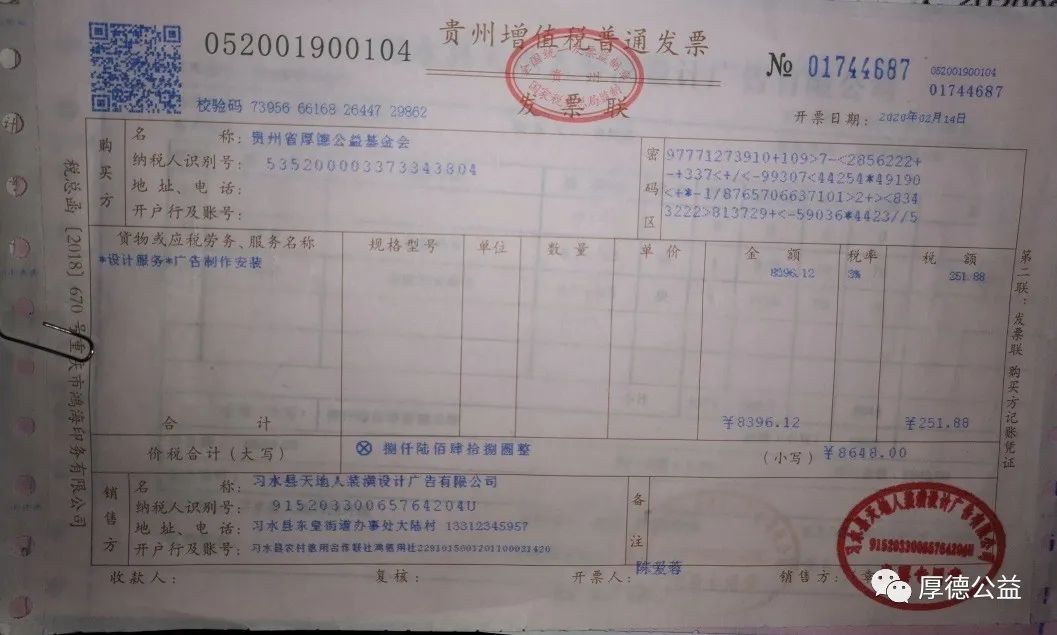 052001900104
贵州增值税普通发票
发票联
全国统一发票监制章
贵州
国家税务总局监制
№ 01744687
052001900104
01744687
校验码 73956 66168 26447 29862
开票日期: 2020年02月14日
购买方
名 称: 贵州省厚德公益基金会
纳税人识别号: 535200003373343804
地 址、电 话:
开户行及账号:
密码区
97771273910+109>7-<2856222+
-+337<+/<-99307<44254*49190
<+*-1/8765706637101>2+><834
3222>813729+<-59036*4423//5
货物或应税劳务、服务名称 规格型号 单位 数 量 单 价 金 额 税率 税 额
*设计服务*广告制作安装 8396.12 3% 251.88
合 计 ¥8396.12 ¥251.88
价税合计(大写) ⊗ 捌仟陆佰肆拾捌圆整 (小写) ¥8648.00
销售方
名 称: 习水县天地人装潢设计广告有限公司
纳税人识别号: 91520330065764204U
地 址、电 话: 习水县东皇街道办事处大陆村 13312345957
开户行及账号: 习水县农村信用合作联社鸿德用社
备注
收款人: 复核: 开票人: 陈爱蓉 销售方: 章
税总函〔2018〕670号重庆市鸿海印务有限公司
第二联:发票联 购买方记账凭证
习水县天地人装潢设计广告有限公司
91520330065764204U
厚德公益